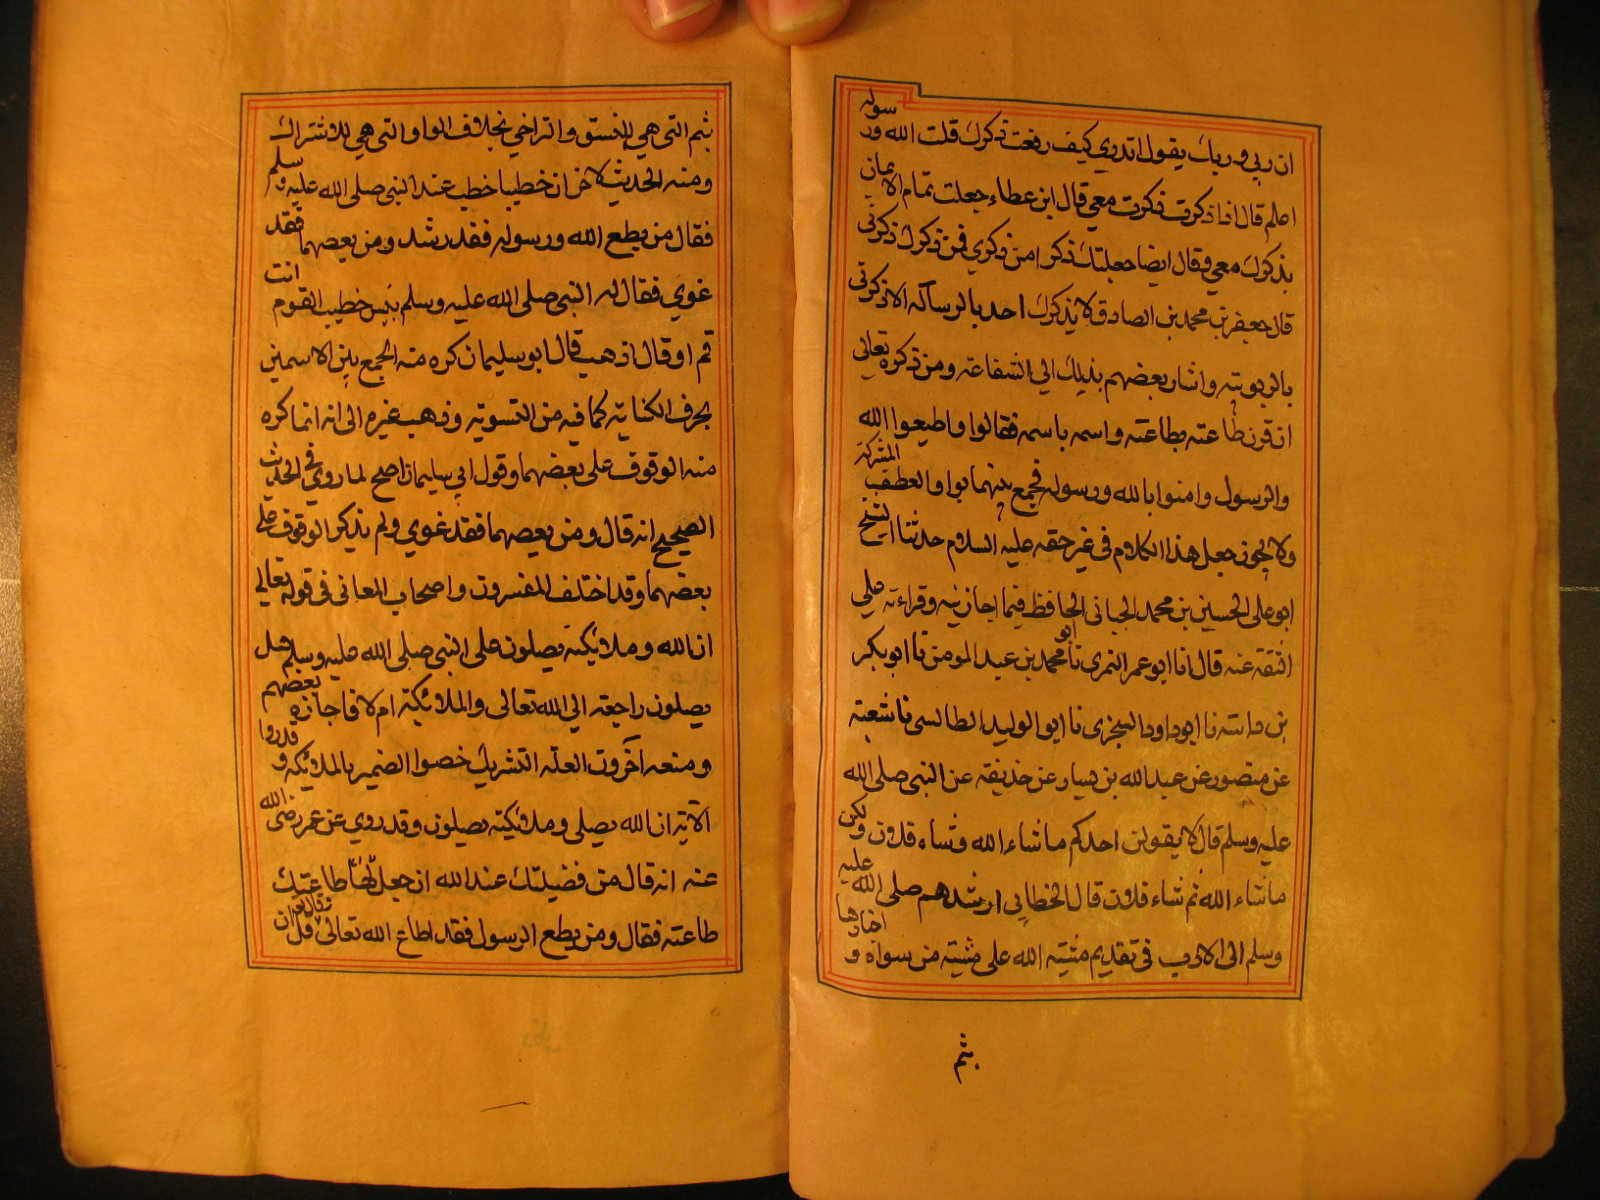 ان ربي وربك يقول اتدري كيف رفعت ذكرك قلت الله ورسوله
اعلم قال اذا ذكرت ذكرت معي قال ابن عطاء جعلت تمام الايمان
بذكرك معي وقال ايضا جعلتك ذكرا من ذكري فمن ذكرك ذكرني
قال جعفر بن محمد بن الصادق لا يذكرك احد بالرساله الا ذكرني
بالربوبيته واشار بعضهم بذلك الي الشفاعته ومن ذكره تعالي
ان قرن طاعته بطاعته واسمه باسمه فقالوا واطيعوا الله
والرسول وامنوا بالله ورسوله فجمع بينهما بواو العطف المشركة
ولا يجوز جعل هذا الكلام في غير حقه عليه السلام حدثنا الشيخ
ابو علي الحسين بن محمد الجياني الحافظ فيما اجازنيه وقراءته علي
الثقة عنه قال انا ابو عمر النمري نا ابو محمد بن عبد المومن نا ابو بكر
بن داسته نا ابو داود السجزي نا ابو الوليد الطالسي نا شعبته
عن منصور عن عبد الله بن يسار عن حذيفته عن النبي صلي الله
عليه وسلم قال لا يقولن احدكم ما شاء الله وشاء فلان ولكن
ما شاء الله ثم شاء فلان قال الخطابي ارشدهم صلي الله عليه
وسلم الي الادب في تقديم مشيته الله علي مشيته من سواه و اختارها
بثم
بثم التي هي للنسق والتراخي بخلاف الواو التي هي للاشتراك
ومنه الحديث لاخر ان خطيبا خطب عند النبي صلي الله عليه وسلم
فقال من يطع الله ورسوله فقد رشد ومن يعصهما فقد
غوي فقال له النبي صلي الله عليه وسلم بئس خطيب القوم انت
قم او قال اذهب قال ابو سليمان كره منه الجمع بين الاسمين
بحرف الكنايته كما فيه من التسويته وذهب غيره الي انه انما كره
منه الوقوف علي يعصهما وقول ابي سليمان اصح لما روي في الحديث
الصحيح انه قال ومن يعصهما فقد غوي ولم يذكر الوقوف علي
يعصهما وقد اختلف المفسرون واصحاب المعاني في قوله تعالي
ان الله وملائكته يصلون علي النبي صلي الله عليه وسلم هل
يصلون راجعته الي الله تعالي والملائكته ام لا فاجازه بعضهم
ومنعه آخرون لعلته التشريك خصوا الضمير بالملائكه وقدروا
الآيته ان الله يصلي وملائكته يصلون وقد روي عن عمر رضي الله
عنه انه قال من فضيلتك عند الله ان جعل طاعتك
طاعته فقال ومن يطع الرسول فقد اطاع الله تعالي